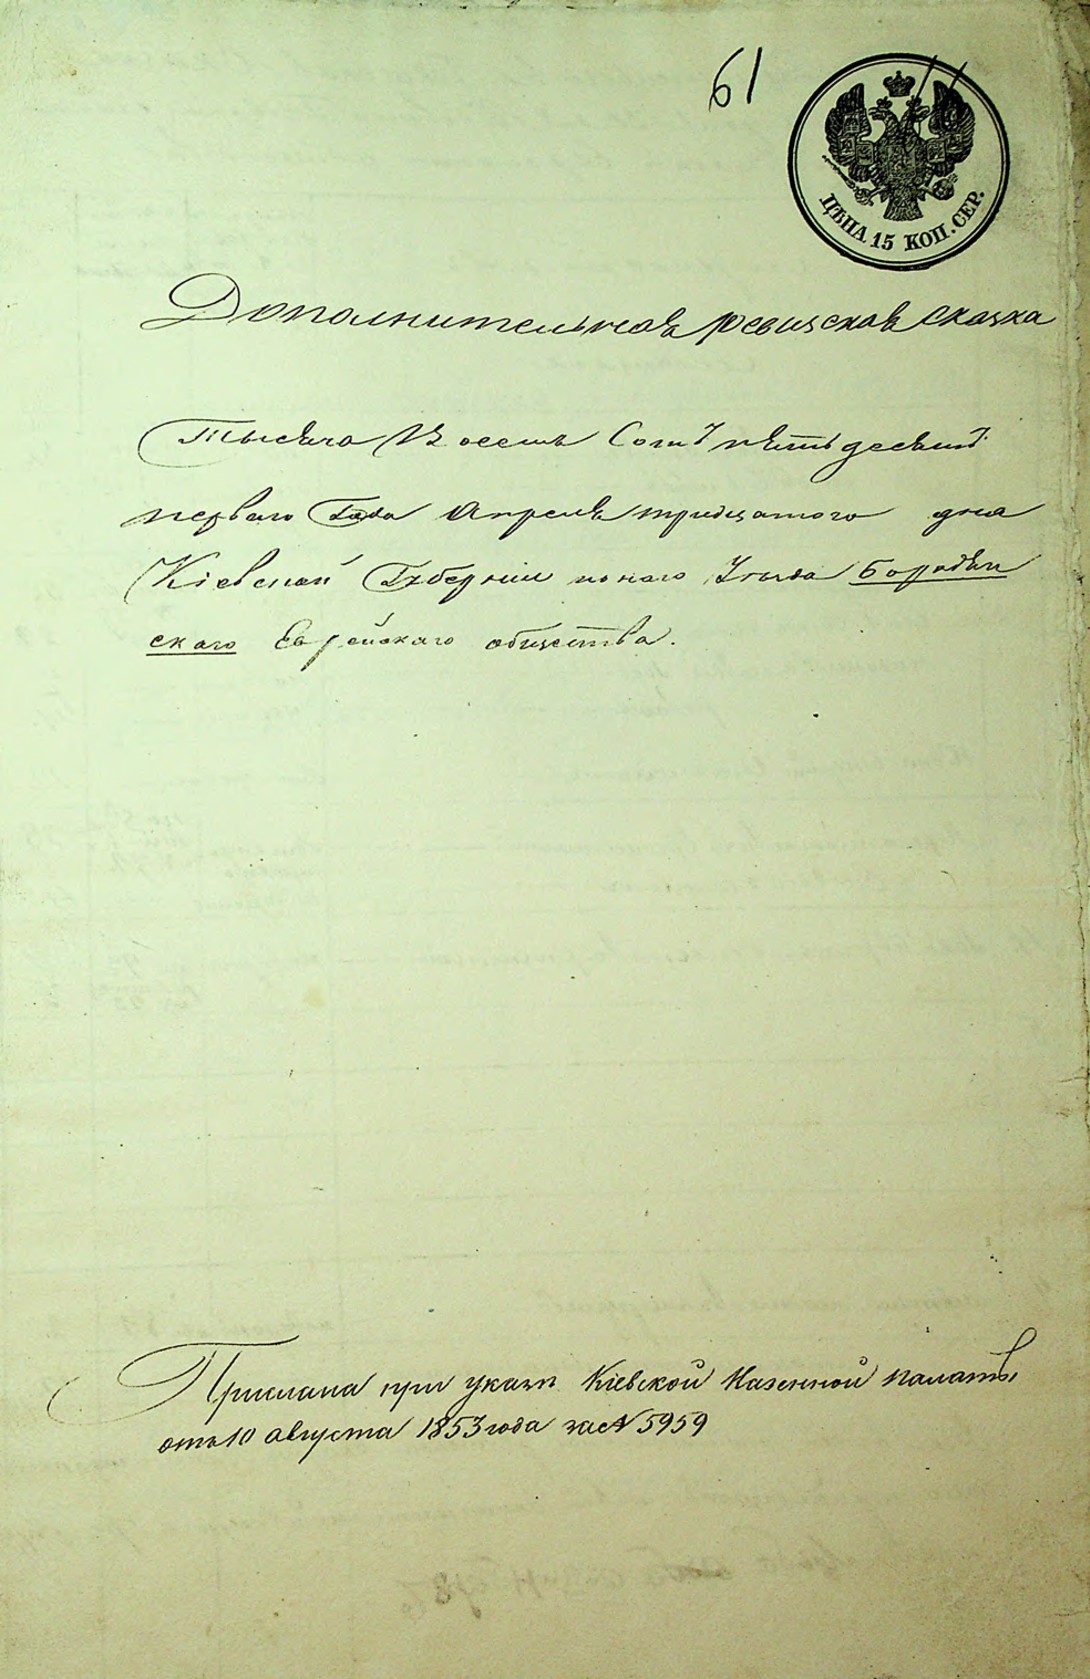 61
ЦѢНА 15 КОП. СЕР.
Дополнительная ревизская сказка
Тысяча Восемь Сотъ пятьдесятъ
перваго Года Апреля тридцатого дня
Кіевской Губерніи того Уѣзда Бородян
скаго Еврейскаго общества.
Прислана при указѣ Кіевской Казенной палаты
отъ 10 августа 1853 года за № 5959